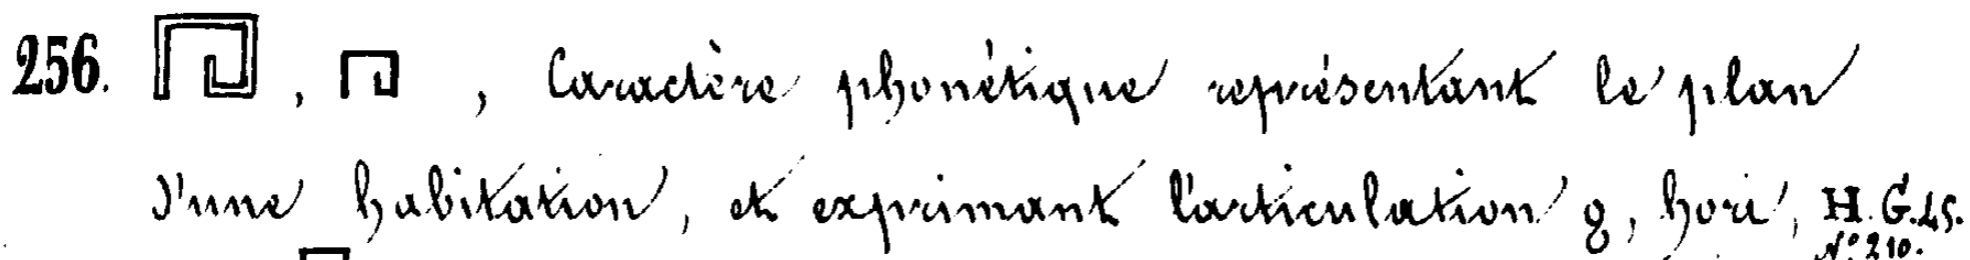 256. 𓉔, 𓉔, Caractère phonétique représentant le plan
d'une habitation, et exprimant l'articulation ϩ, hori, H. G. 45.
N.º 210.